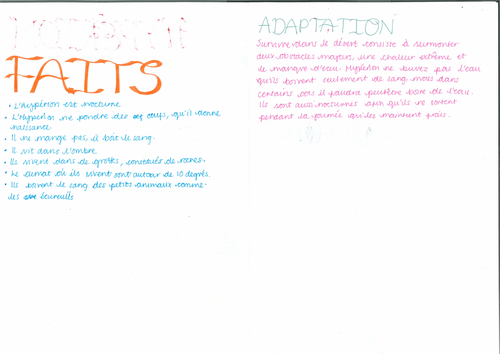 FAITS
• L'Hypérion est nocturne
• L'Hypérion ne pondre des oeufs, qu'il donne
naissance
• Il ne mange pas, il boit le sang.
• Il vit dans l'ombre
• Ils vivent dans de grottes, construés de roches.
• Le climat où ils vivent sont autour de 10 degrés.
• Ils boivent le sang des petits animaux comme
les écureuils
ADAPTATION
Survivre dans le désert consiste à surmonter
deux obstacles majeurs, une chaleur extrême et
le manque d'eau. Hypérion ne buvez pas l'eau
qu'ils boivent seulement de sang mais dans
certains cas il faudra peutêtre boire de l'eau.
Ils sont aussi nocturnes afin qu'ils ne sortent
pendant la journée qui les maintient frais.